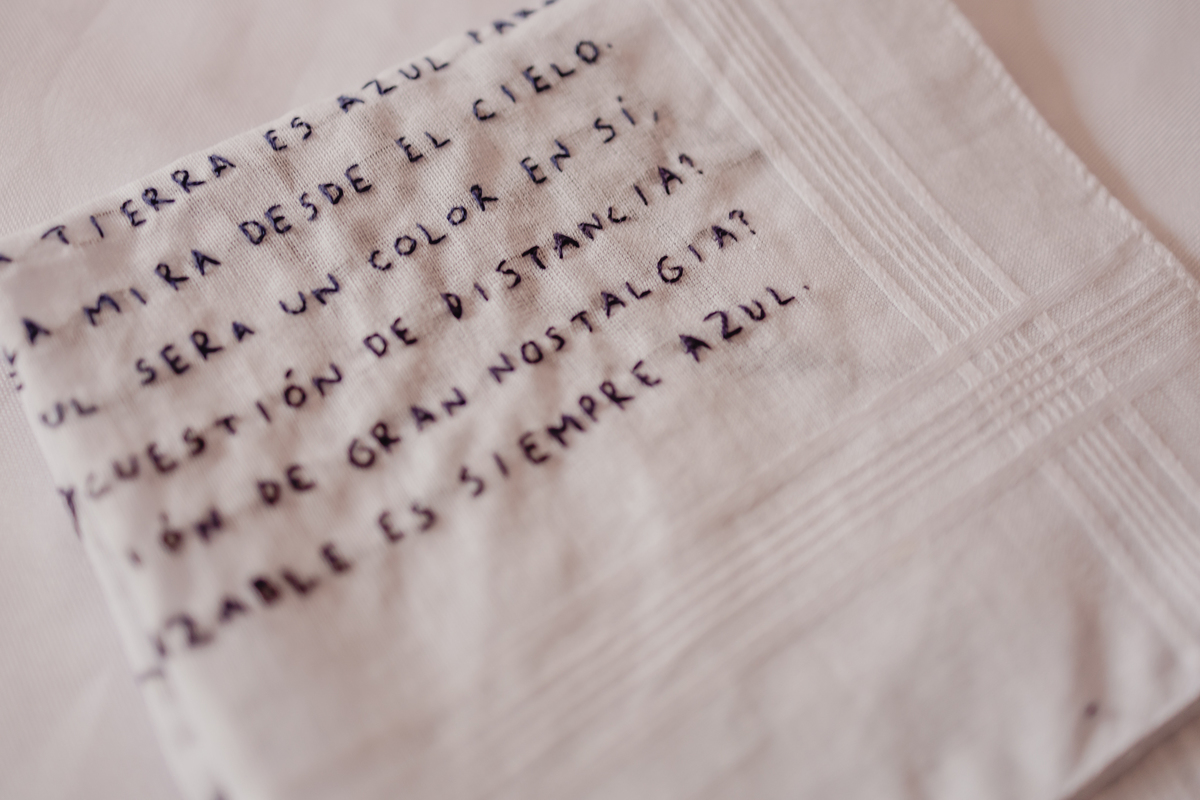 TIERRA ES AZUL PARA
LA MIRA DESDE EL CIELO.
UL SERA UN COLOR EN SÍ,
CUESTIÓN DE DISTANCIA?
IÓN DE GRAN NOSTALGIA?
IZABLE ES SIEMPRE AZUL.